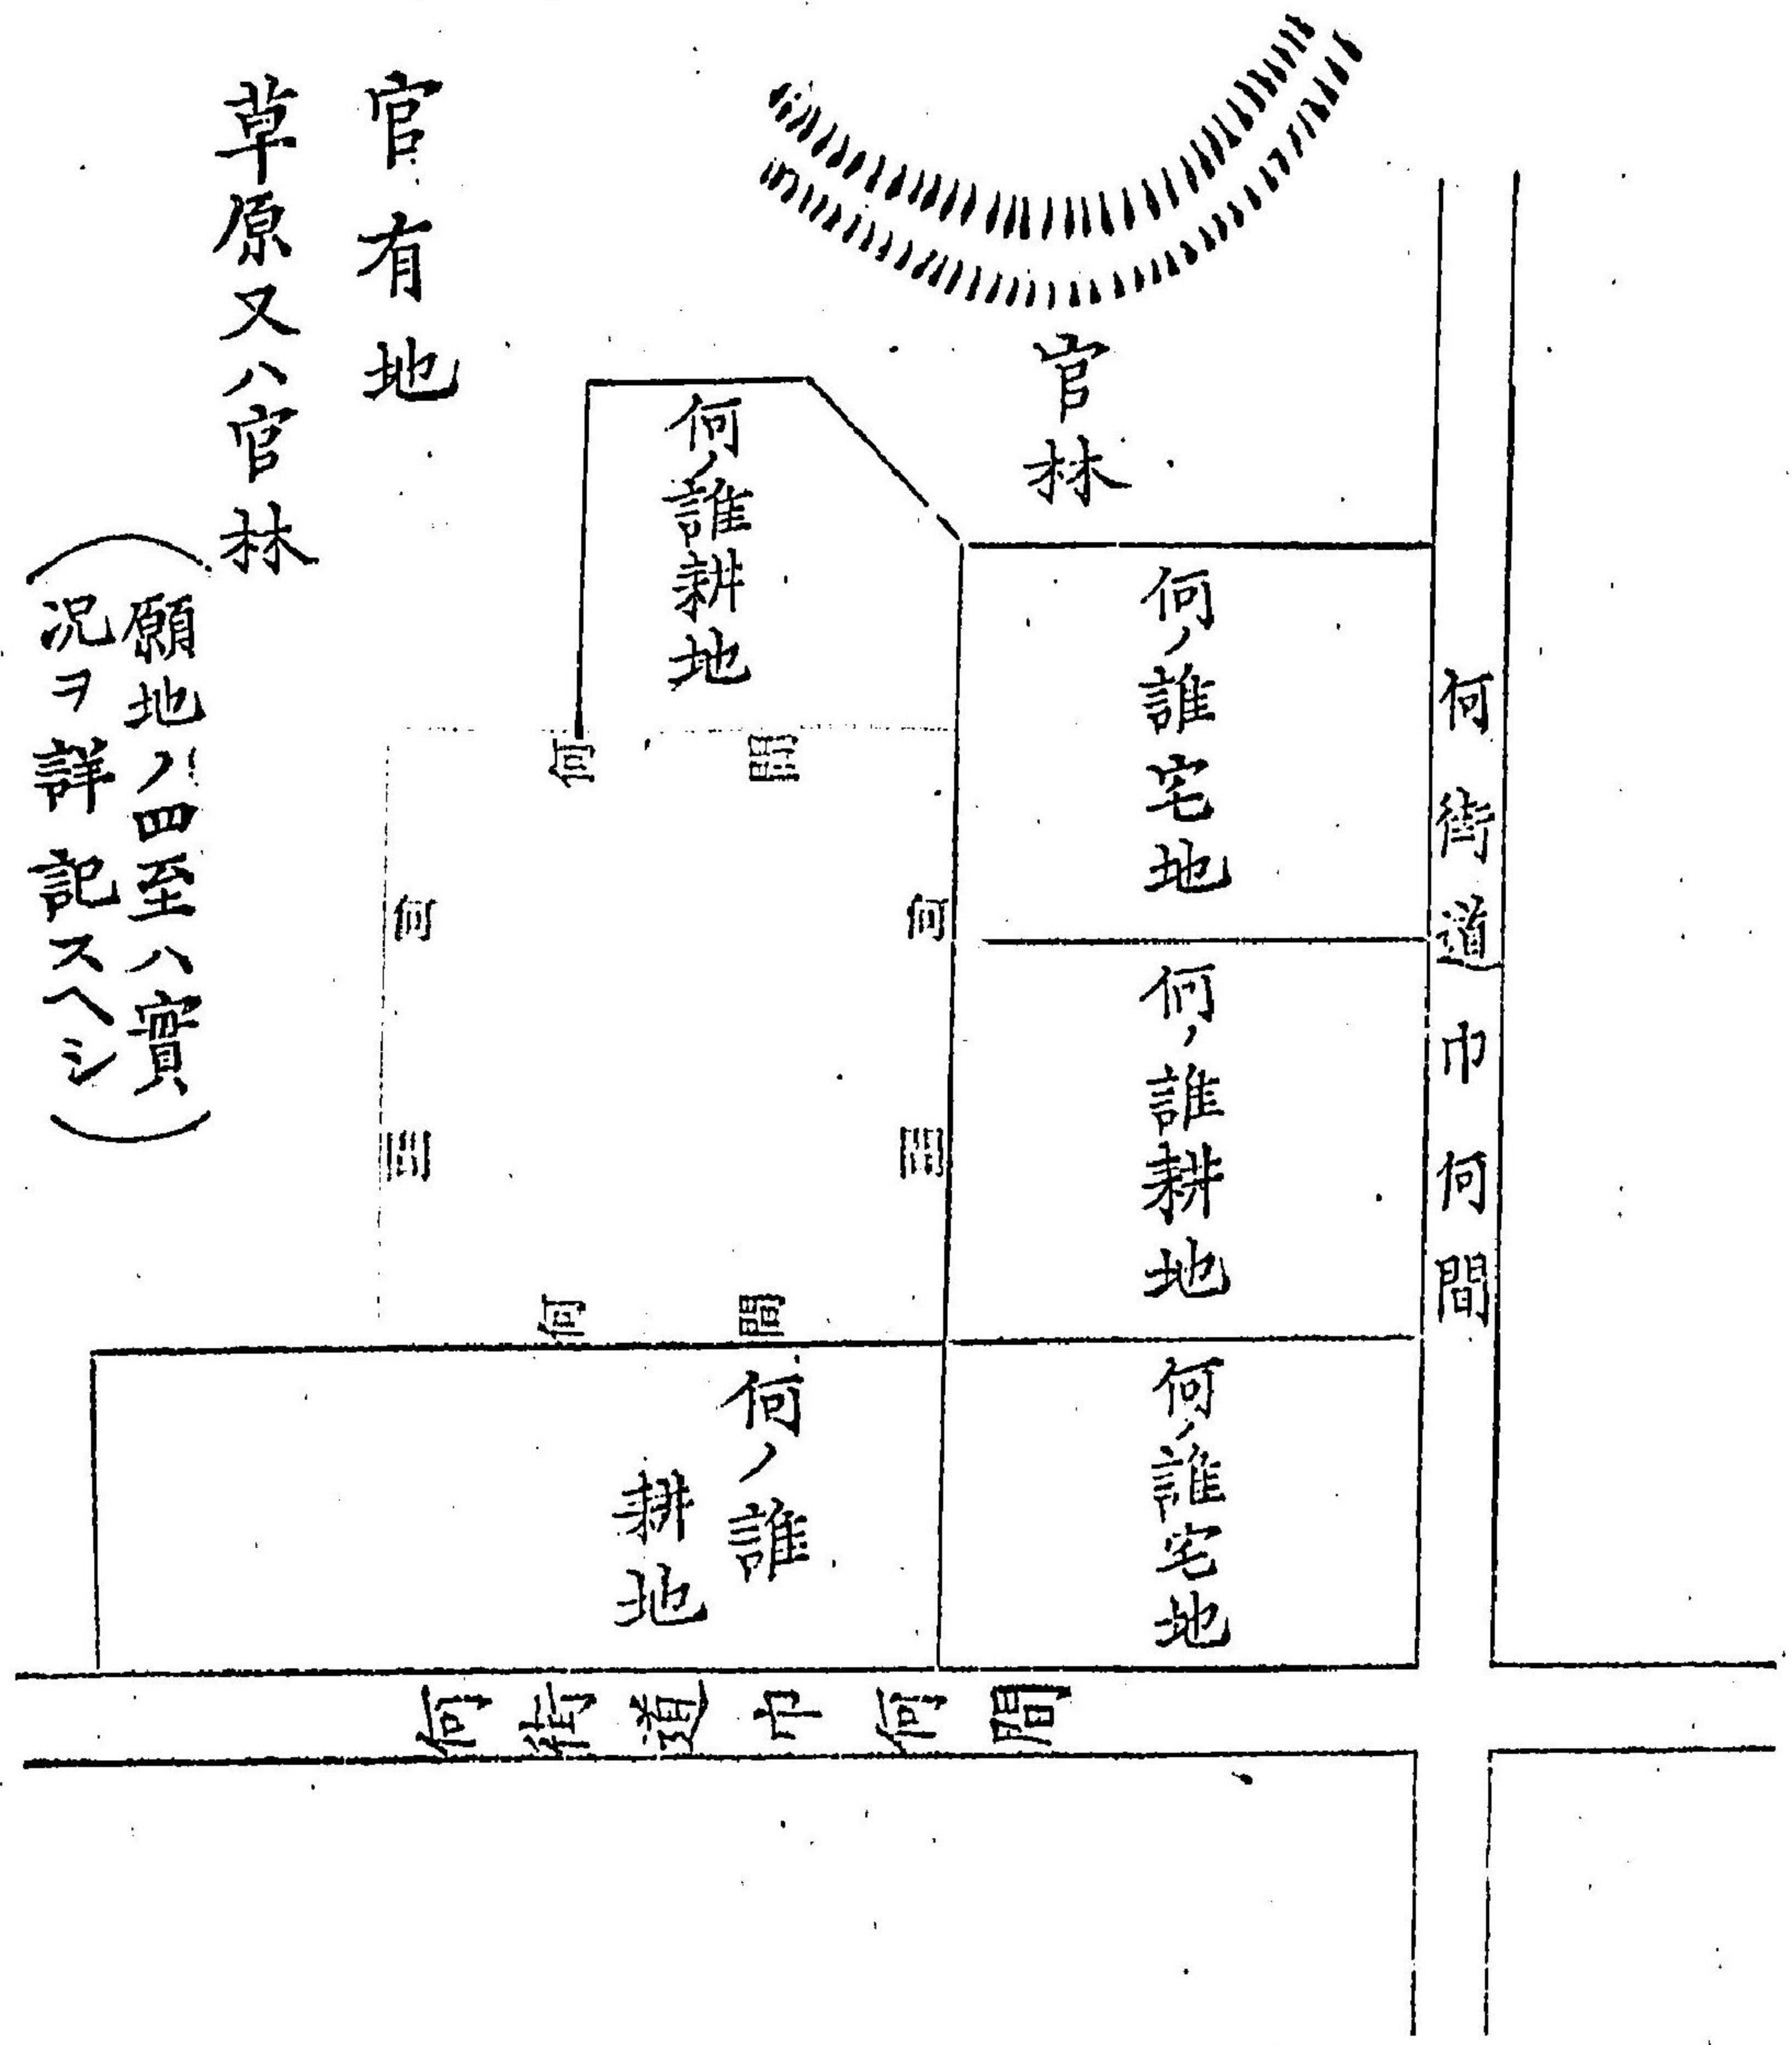 何街道巾何間
官林
何ノ誰宅地
何ノ誰耕地
何ノ誰宅地
何ノ誰耕地
何間
何間
何間
何間
何ノ誰
耕地
何街道巾何間
官有地
草原又ハ官林
(願地ノ四至ハ實
況ヲ詳記スヘシ)